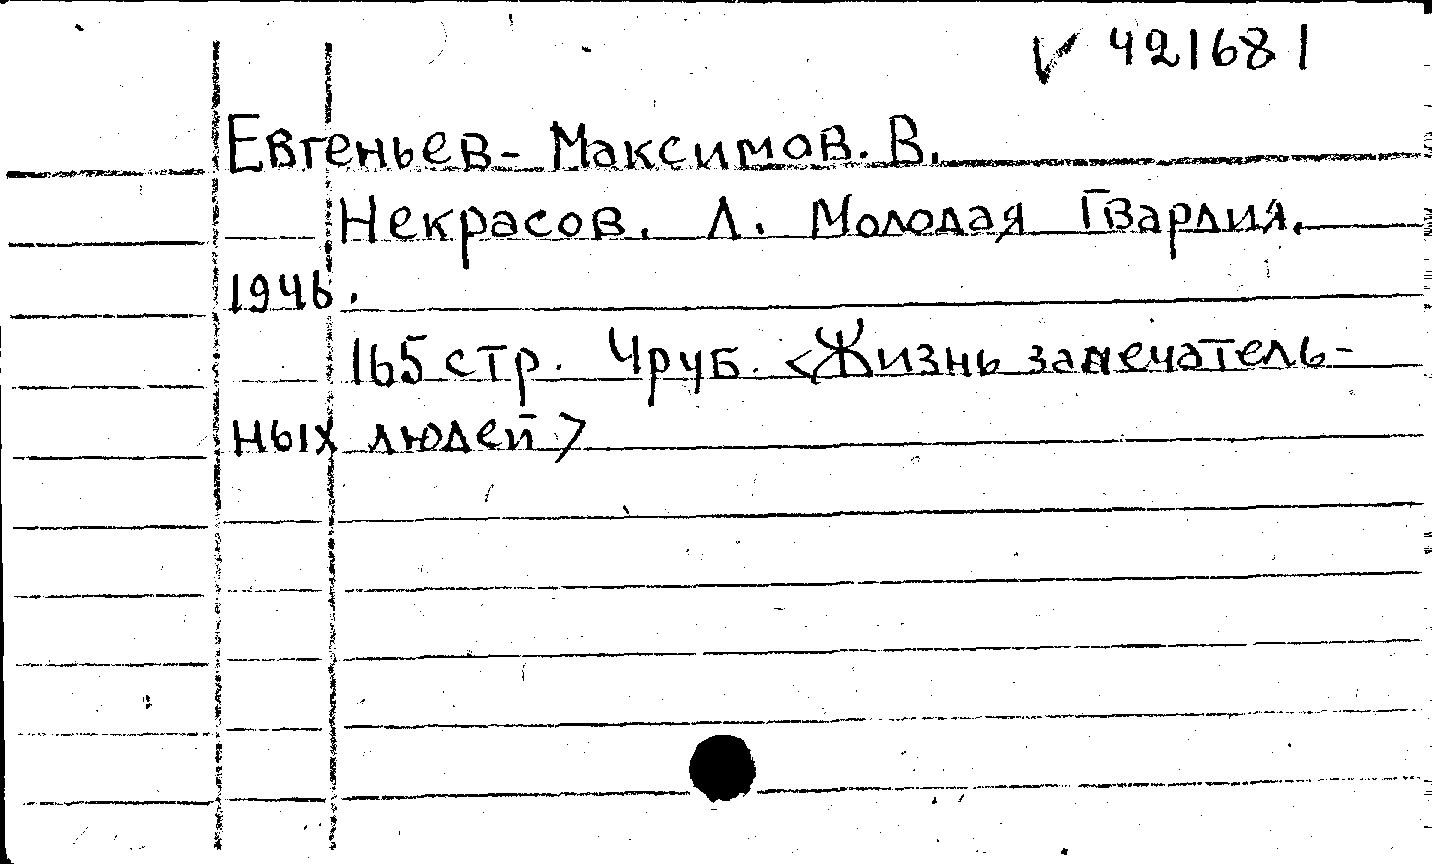 √ 421681
Евгеньев-Максимов. В.
Некрасов. Л. Молодая Гвардия.
1946.
165 стр. 4руб. <Жизнь замечатель-
ных людей>